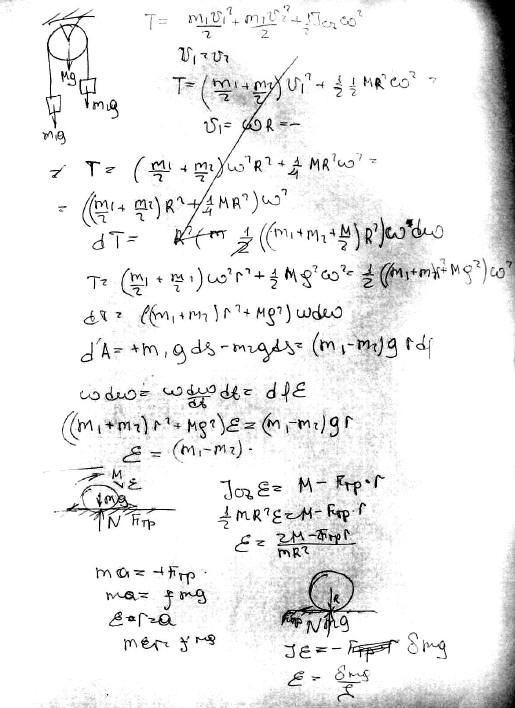 T = m₁v₁²/2 + m₂v₂²/2 + 1/2 J ω²
v₁ = v₂
T = (m₁/2 + m₂/2) v₁² + 1/2 1/2 MR² ω² =
v₁ = ωR =
Mg
m₂g
m₁g
T = (m₁/2 + m₂/2) ω²R² + 1/4 MR²ω² =
= ((m₁/2 + m₂/2) R² + 1/4 MR²) ω²
dT = 1/2 ((m₁ + m₂ + M/2) R²) ω dω
T = (m₁/2 + m₂/2) ω²r² + 1/2 Mρ²ω² = 1/2 ((m₁ + m₂)r² + Mρ²) ω²
dT = ((m₁ + m₂) r² + Mρ²) ω dω
d'A = +m₁g ds − m₂g ds = (m₁ − m₂) g r dφ
ω dω = ω dω/dt dt = dφ ε
((m₁ + m₂) r² + Mρ²) ε = (m₁ − m₂) g r
ε = (m₁ − m₂) ·
M ε
mg
N Fтр
J ε = M − Fтр · r
1/2 mR² ε = M − Fтр · r
ε = 2M − Fтр r / mR²
ma = +Fтр
ma = f mg
ε · r = a
mεr = f mg
R
Fтр N mg
Jε = − δmg
ε = δmg / J